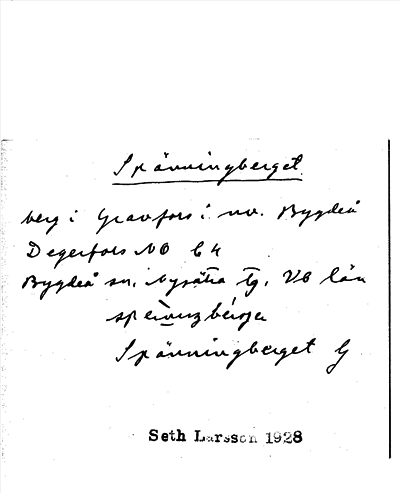 Spänningberget
berg i Granfors i nv. Bygdeå
Degerfors NO C4
Bygdeå sn. Nysätra tg. VB län
Spänningberget G
Seth Larsson 1928